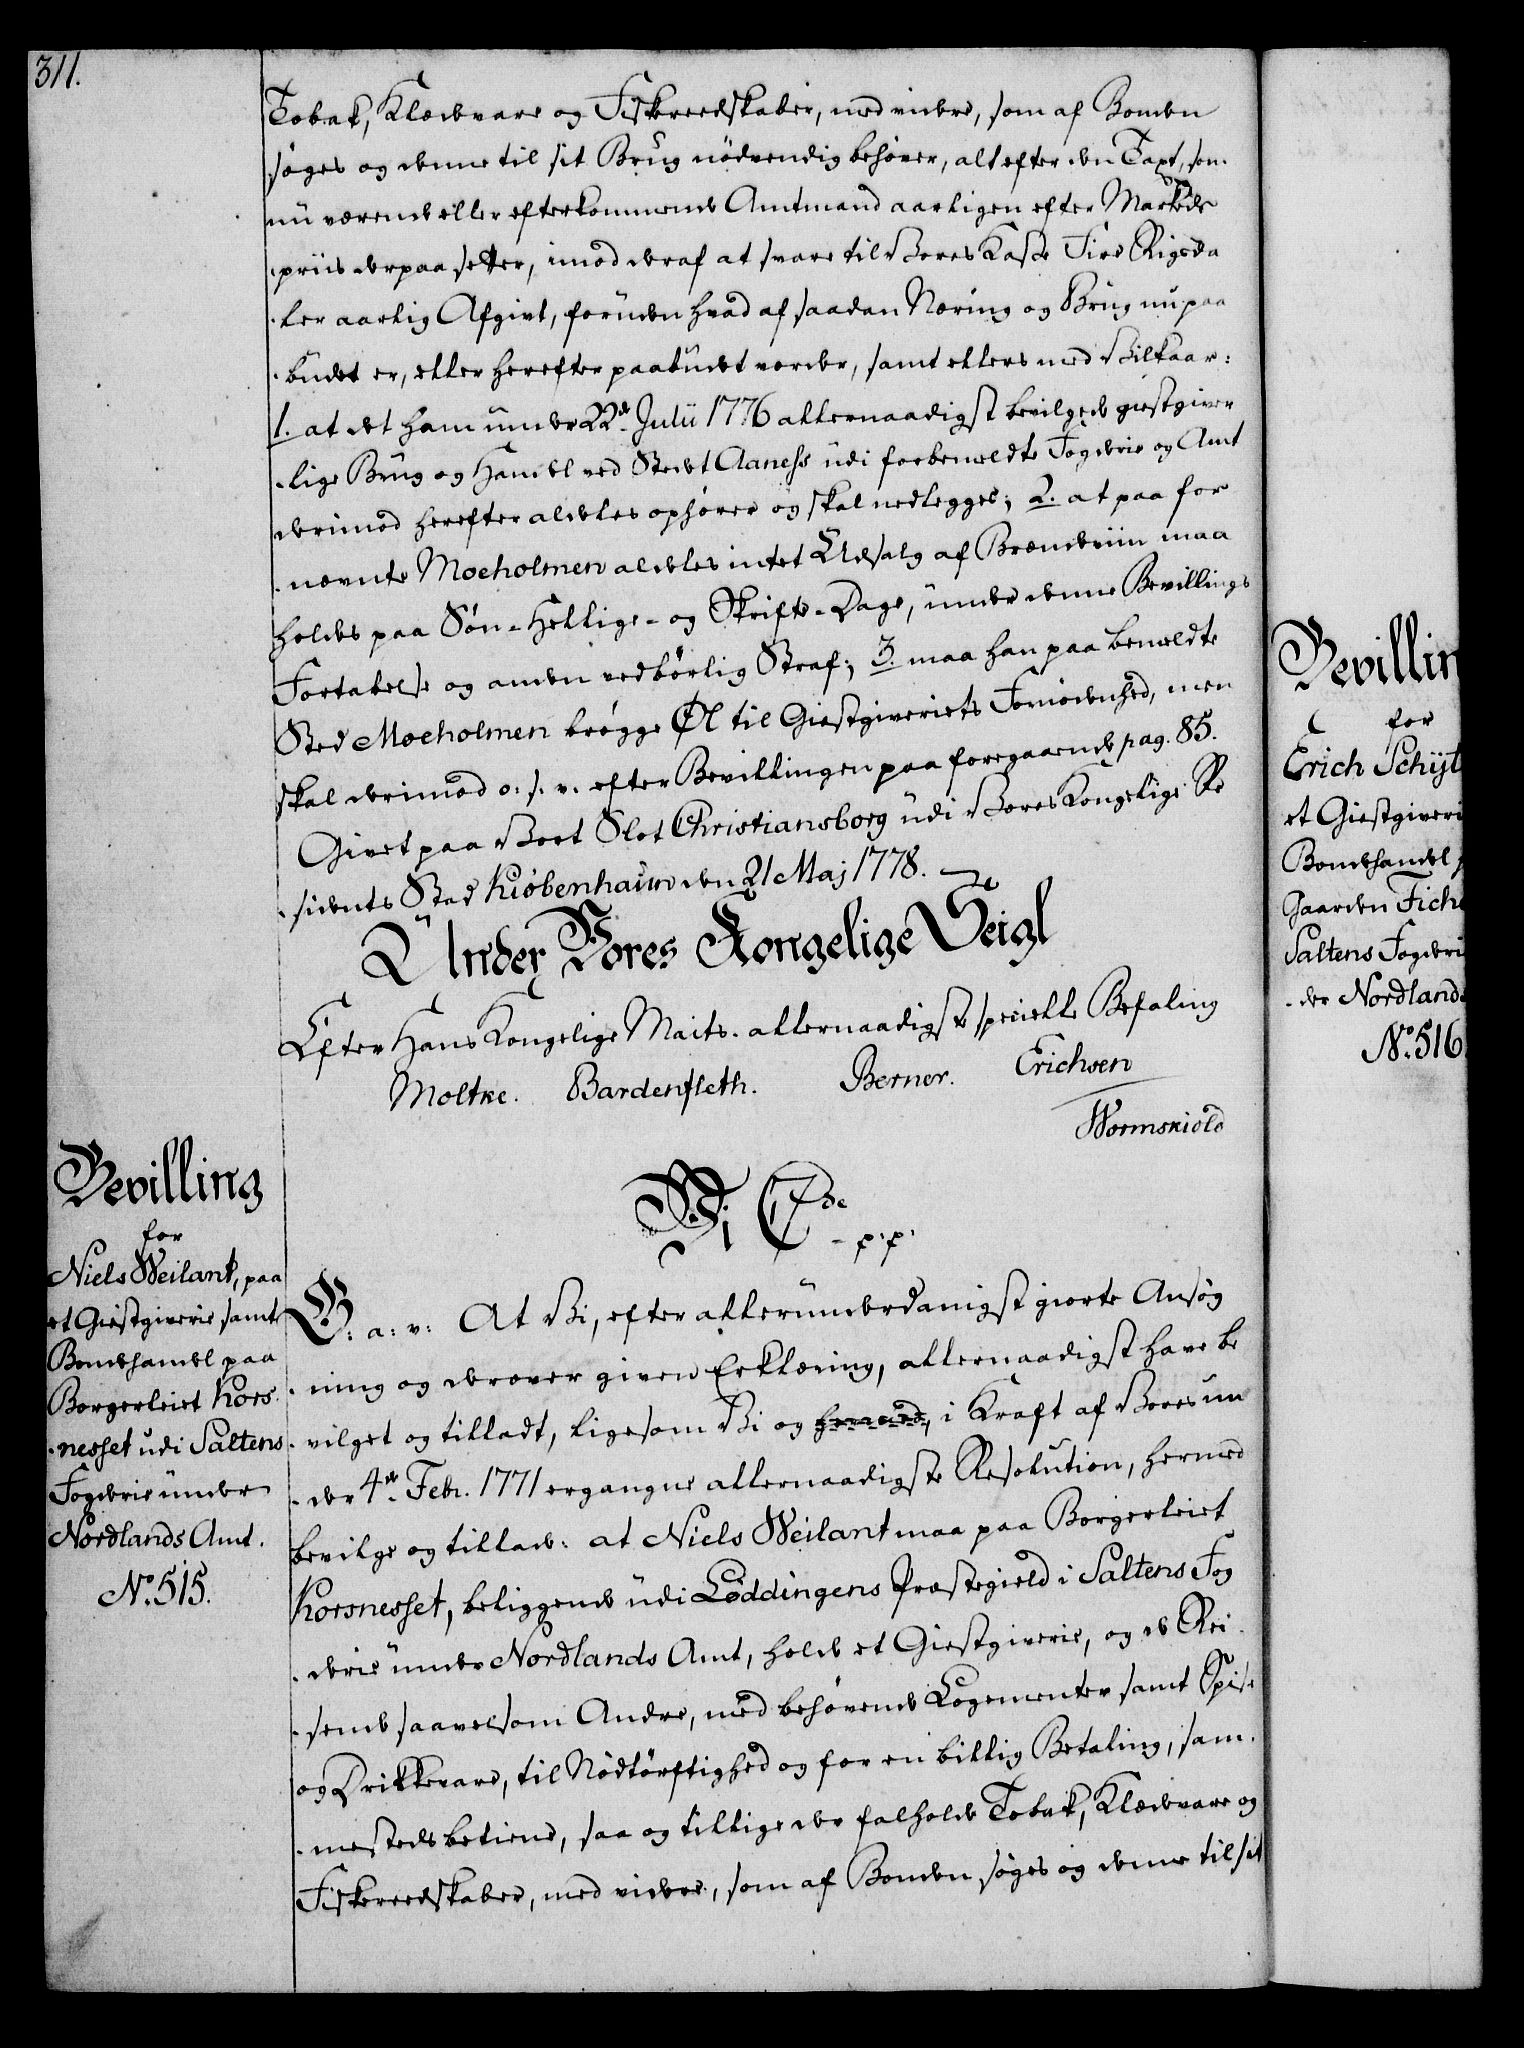 311.
Tobak, Klædevare og Fiskereedskaber, med videre, som af Bonden
søges og denne til sit Brug nödvendig behöver, alt efter den Taxt, som
nu værende eller efterkommende Amtmand aarligen efter Markeds
priis derpaa setter, imod deraf at svare til Vores Kasse Fire Rigsda
ler aarlig Afgivt, foruden hvad af saadan Næring og Brug nu paa
budet er, eller herefter paabudet vorder, samt ellers med Vilkaar:
1. at det ham under 22de Julii 1776 allernaadigst bevilgede giestgiver
lige Brug og Handel ved Stedet Aaness udi forbemeldte Fogderie og Amt
derimod herefter aldeles ophører og skal nedlegges; 2. at paa for
nævnte Moeholmen aldeles intet Udsalg af Brændeviin maa
holdes paa Søn- Hellige- og Skrifte-Dage, under denne Bevillings
Fortabelse og anden vedbørlig Straf; 3. maa han paa bemeldte
Sted Moeholmen brøgge Øl til Giestgiveriets Fornødenhed, men
skal derimod o. s. v. efter Bevillingen paa foregaaende pag. 85.
Givet paa Vort Slot Christiansborg udi Vores Kongelige Re
sidents Stad Kiöbenhaun den 21 Maj 1778.
Under Vores Kongelige Seigl
Efter Hans Kongelige Maits. allernaadigste specielle Befaling
Moltke. Bardenfleth. Berner. Erichsen
Wormskiold
Bevilling
for
Niels Weilant, paa
et Giestgiverie samt
Bondehandel paa
Borgerleiet Kors
nesset udi Saltens
Fogderie under
Nordlands Amt.
No. 515.
Vi C 7de
p. p.
G: a: v: At Vi, efter allerunderdanigst giorte Ansøg
ning og derover given Erklæring, allernaadigst have be
vilget og tilladt, ligesom Vi og hermed, i Kraft af Vores un
der 4de Febr. 1771 ergangne allernaadigste Resolution, hermed
bevilge og tillade: at Niels Weilant maa paa Borgerleiet
Korsnesset, beliggende udi Löddingens Præstegield i Saltens Fog
derie under Nordlands Amt, holde et Giestgiverie, og de Rei
sende saavelsom Andre, med behøvende Logementer samt Spise
og Drikkevare, til Nödtörftighed og for en billig Betaling, sam
mesteds betiene, saa og tillige der falholde Tobak, Klædevare og
Fiskereedskaber, med videre, som af Bonden søges og denne til sit
Bevillin
for
Erich Schyt
et Giestgiveri
Bondehandel p
Gaarden Fich
Saltens Fogderi
der Nordland
No. 516.